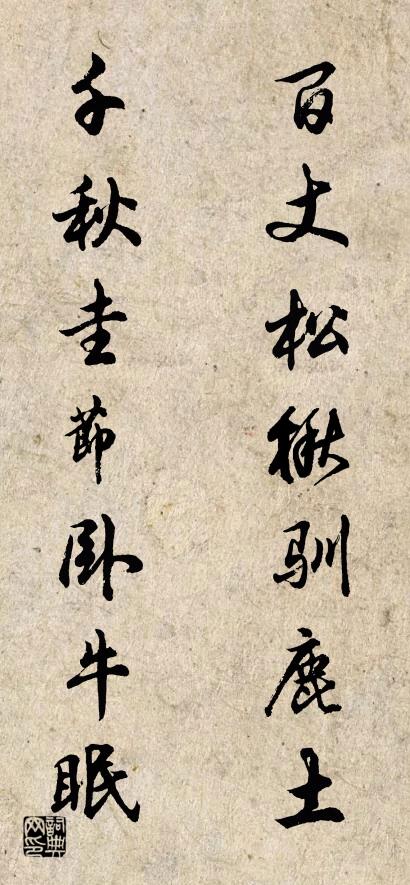 百丈松楸驯鹿土
千秋圭節卧牛眠
詞典网印